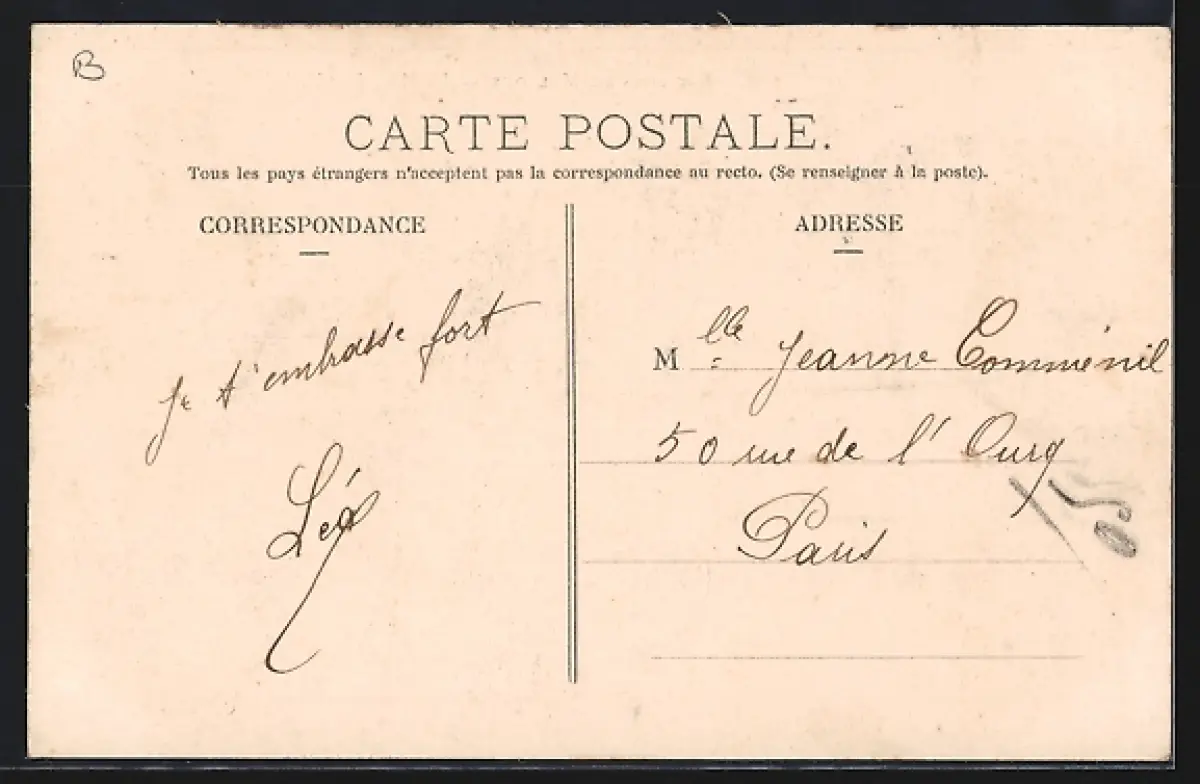 B
CARTE POSTALE.
Tous les pays étrangers n'acceptent pas la correspondance au recto. (Se renseigner à la poste).
CORRESPONDANCE
Je t'embrasse fort
Léa
ADRESSE
Mlle Jeanne Comménil
50 rue de l'Ourq
Paris